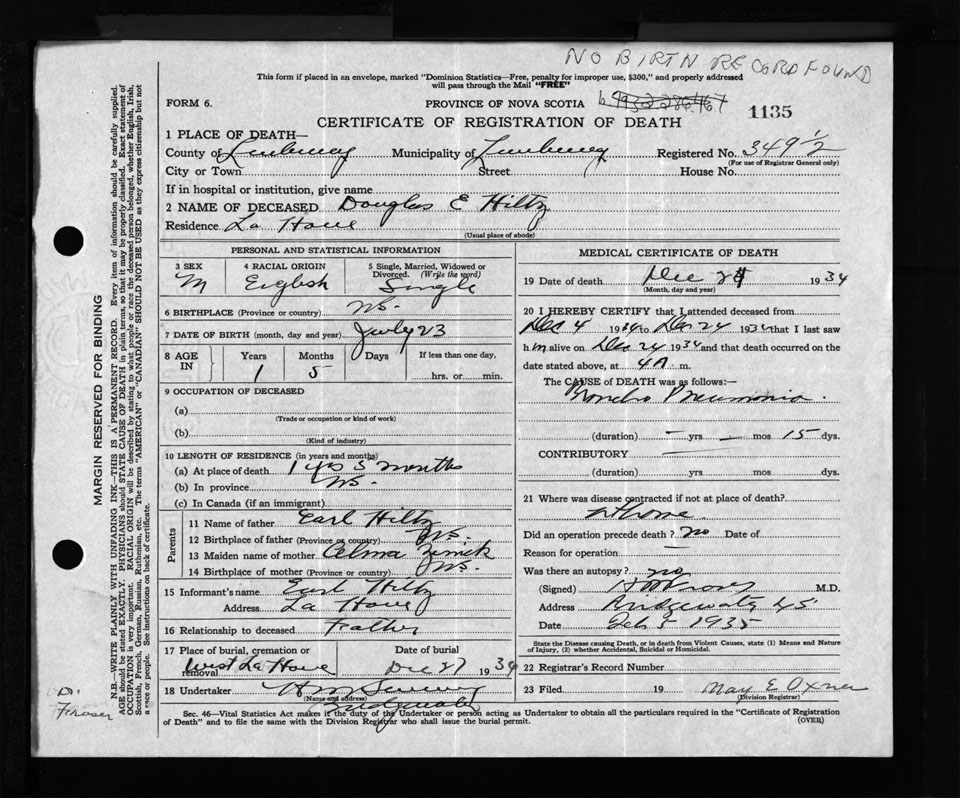 NO BIRTH RECORD FOUND
This form if placed in an envelope, marked "Dominion Statistics—Free, penalty for improper use, $300," and properly addressed
will pass through the Mail "FREE"
FORM 6.
PROVINCE OF NOVA SCOTIA
1135
CERTIFICATE OF REGISTRATION OF DEATH
1 PLACE OF DEATH—
County of Lunenburg Municipality of Lunenburg Registered No. 349½
(For use of Registrar General only)
City or Town Street House No.
If in hospital or institution, give name
2 NAME OF DECEASED Douglas E Hiltz
Residence La Have
(Usual place of abode)
PERSONAL AND STATISTICAL INFORMATION
3 SEX M
4 RACIAL ORIGIN English
5 Single, Married, Widowed or Divorced. (Write the word) Single
6 BIRTHPLACE (Province or country) NS.
7 DATE OF BIRTH (month, day and year) July 23
8 AGE IN Years Months Days If less than one day,
1 5 hrs. or min.
9 OCCUPATION OF DECEASED
(a)
(Trade or occupation or kind of work)
(b)
(Kind of industry)
10 LENGTH OF RESIDENCE (in years and months)
(a) At place of death 1 yrs 5 months
(b) In province NS.
(c) In Canada (if an immigrant)
Parents
11 Name of father Earl Hiltz
12 Birthplace of father (Province or country) NS.
13 Maiden name of mother
14 Birthplace of mother (Province or country) NS.
15 Informant's name Earl Hiltz
Address La Have
16 Relationship to deceased Father
17 Place of burial, cremation or removal West La Have
Date of burial Dec 27 1934
18 Undertaker
(Name and address)
Bridgewater
MEDICAL CERTIFICATE OF DEATH
19 Date of death Dec 24 1934
(Month, day and year)
20 I HEREBY CERTIFY that I attended deceased from
Dec 4 1934 to Dec 24 1934 that I last saw
h m alive on Dec 24 1934 and that death occurred on the
date stated above, at 4 A m.
The CAUSE of DEATH was as follows:—
Broncho Pneumonia.
(duration) — yrs — mos 15 dys.
CONTRIBUTORY
(duration) yrs mos dys.
21 Where was disease contracted if not at place of death?
at home.
Did an operation precede death? no Date of
Reason for operation
Was there an autopsy? no
(Signed) M.D.
Address Bridgewater NS.
Date Feb 5 1935
State the Disease causing Death, or in death from Violent Causes, state (1) Means and Nature
of Injury, (2) whether Accidental, Suicidal or Homicidal.
22 Registrar's Record Number
23 Filed 19 May E Oxner
(Division Registrar)
Sec. 46—Vital Statistics Act makes it the duty of the Undertaker or person acting as Undertaker to obtain all the particulars required in the "Certificate of Registration
of Death" and to file the same with the Division Registrar who shall issue the burial permit.
(OVER)
MARGIN RESERVED FOR BINDING
N.B.—WRITE PLAINLY WITH UNFADING INK—THIS IS A PERMANENT RECORD. Every item of information should be carefully supplied.
AGE should be stated EXACTLY. PHYSICIANS should STATE CAUSE OF DEATH in plain terms, so that it may be properly classified. Exact statement of
OCCUPATION is very important. RACIAL ORIGIN will be described by stating to what people or race the deceased person belonged, whether English, Irish,
Scottish, French, German, Russian, Ruthenian, etc. The terms "AMERICAN" or "CANADIAN" SHOULD NOT BE USED as they express citizenship but not
a race or people. See instructions on back of certificate.
Dr.
Fraser